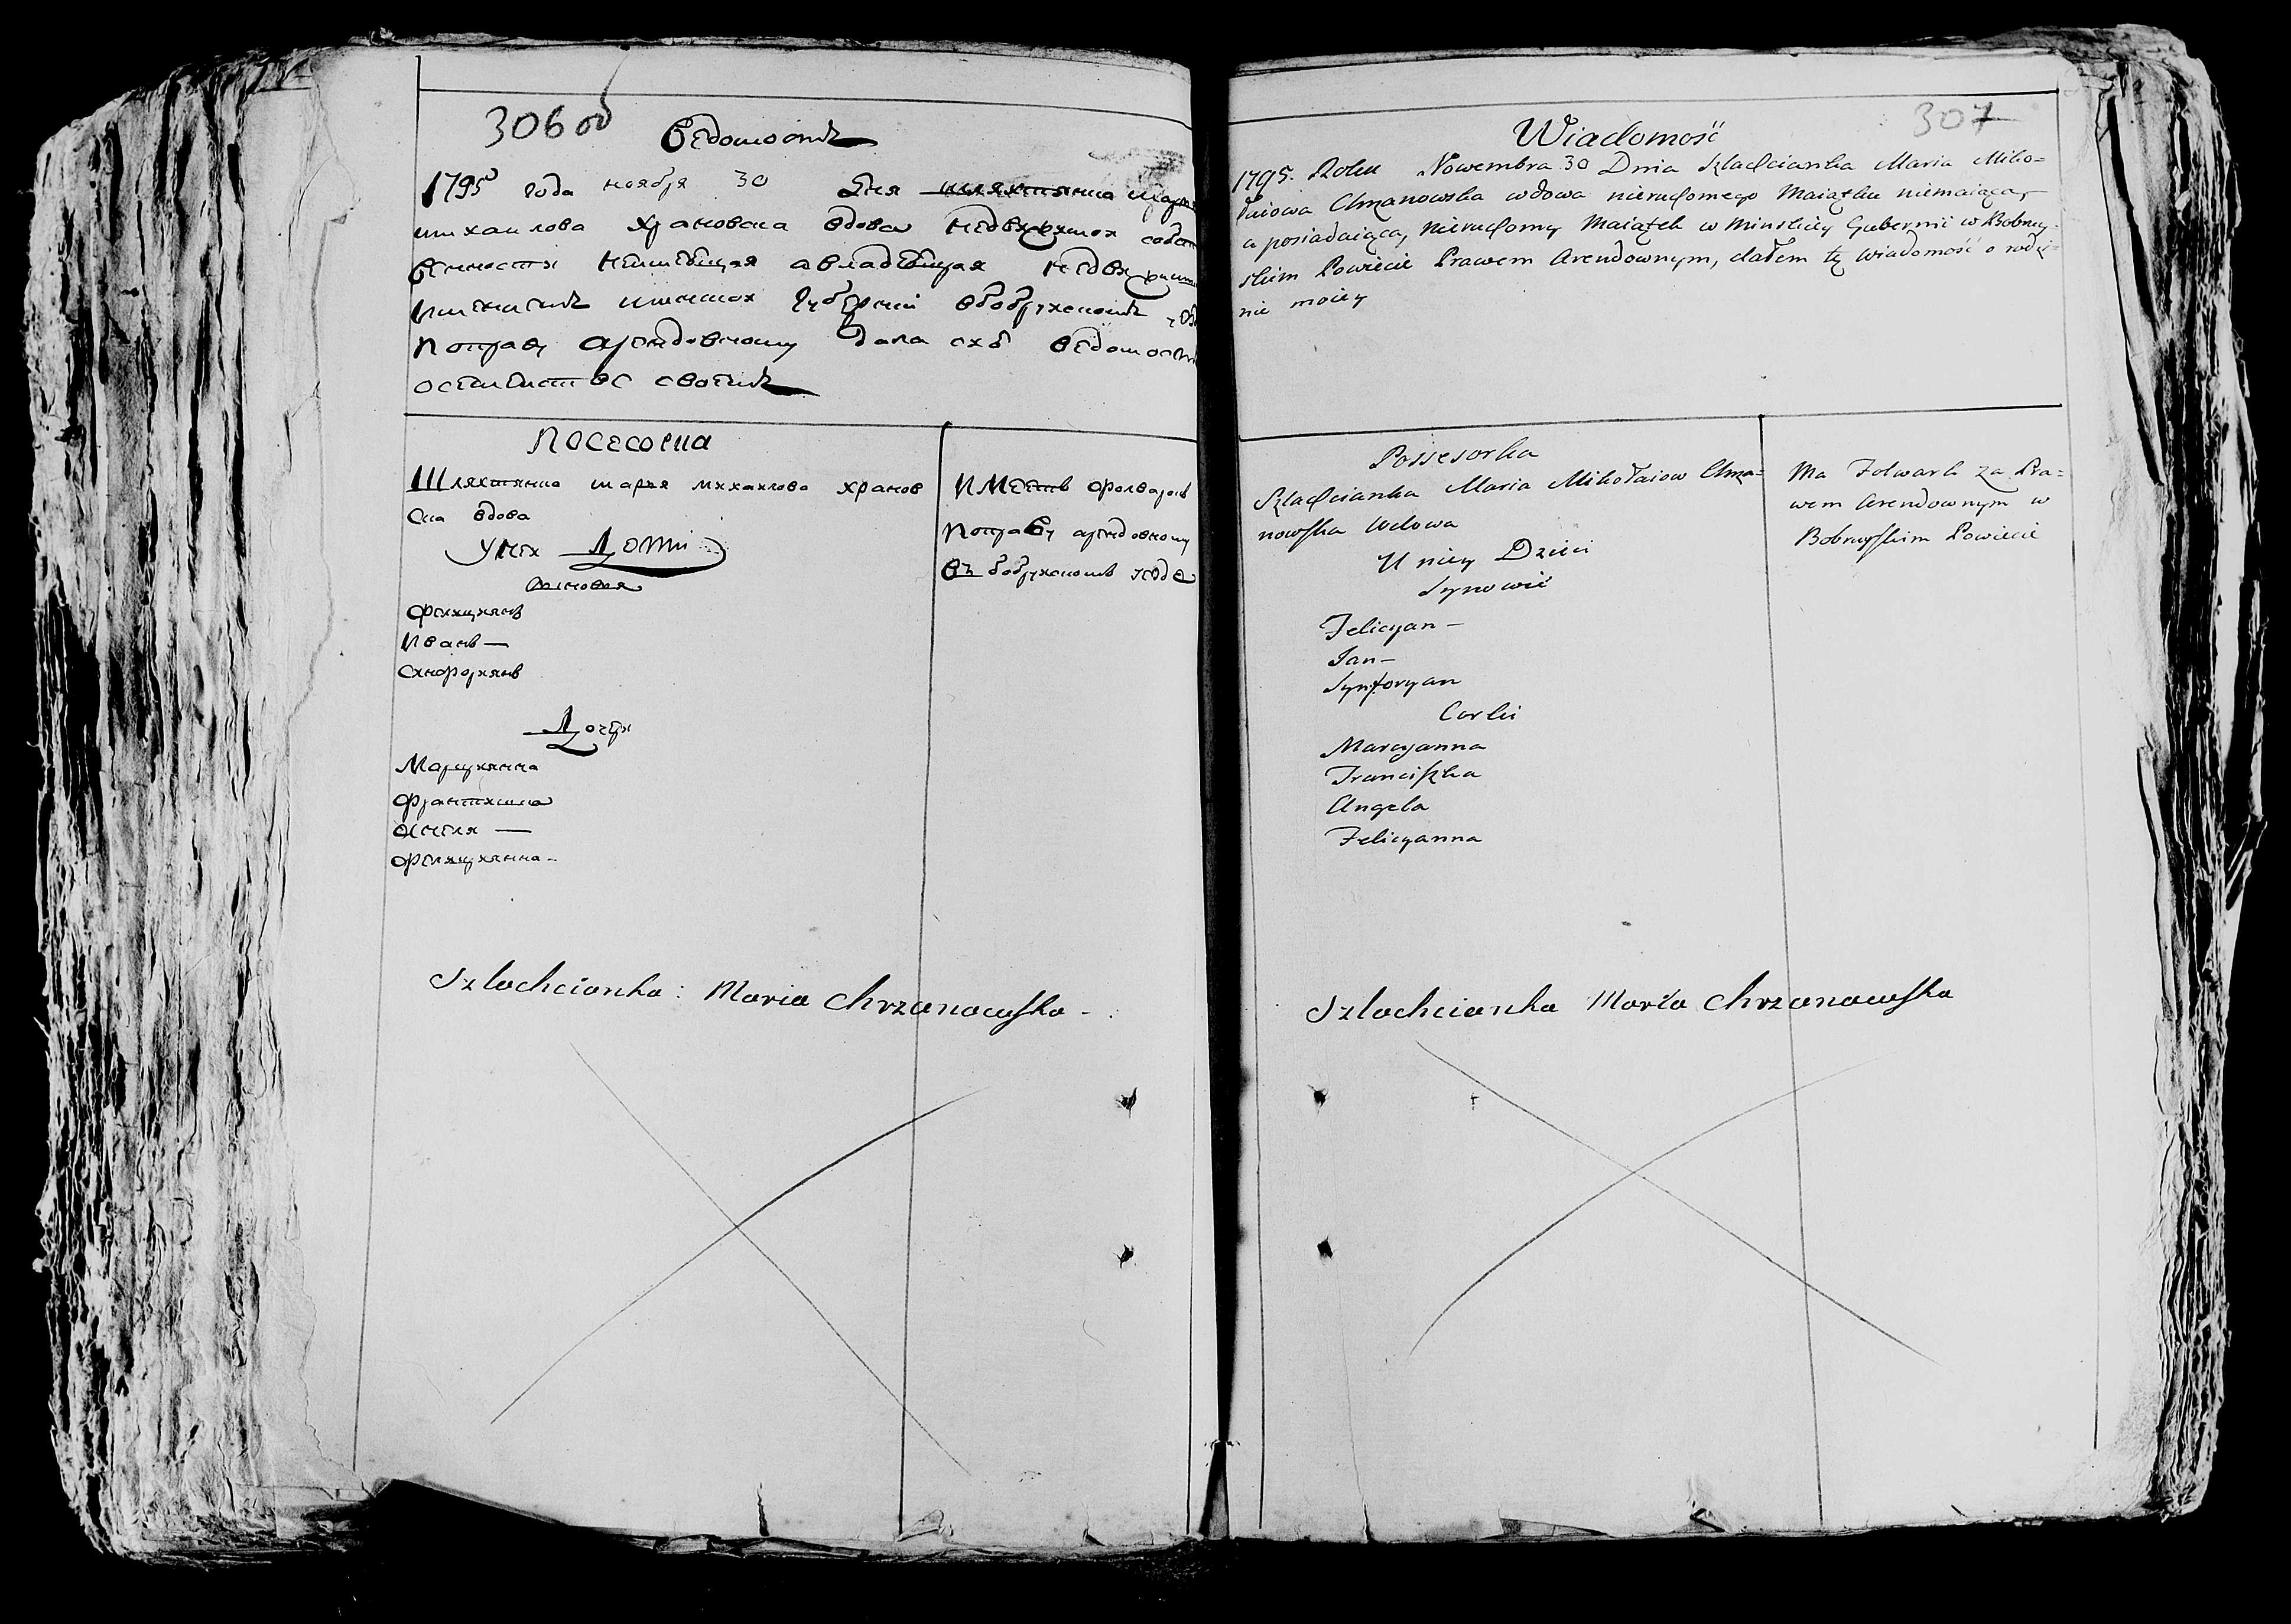 306 об
Ведомость
1795 года ноября 30 Дня шляхтянка Марья
михаилова Храновска вдова недвижимой собст
венности неимеющая авладеющая недвижим
имением минской губернии вбобруйскомъ
поправу арендовному дала сию ведомость
осемействе своемъ
Посесорка
Шляхтянка марья михаилова хранов
ска вдова
Унея Дети
Сыновья
Фелицианъ
Иванъ —
Синфориянъ
Дочери
Марцианна
Франтишка
Анеля —
Фелицианна -
Имеетъ фолварокъ
поправу арендовному
въ бобруйскомъ уезде
Szlachcianka: Maria Chrzanowska -
307
Wiadomość
1795. Roku Nowembra 30 Dnia Szlachcianka Maria Miko=
łaiowa Chrzanowska wdowa nieruchomego Maiątku niemaiąca,
a posiadaiąca, nieruchomy Maiątek w Minskiey Gubernii w Bobruy=
skim Powiecie Prawem Arendownym, dałem tę wiadomość o rodzi=
nie moiey
Possesorka
Szlachcianka Maria Mikołaiow Chrza=
nowska Wdowa
U niey Dzieci
Synowie
Felicyan —
Jan —
Synforyan
Corki
Marcyanna
Franciszka
Angela
Felicyanna
Ma Folwark za Pra=
wem Arendownym w
Bobruyskim Powiecie
Szlachcianka Maria Chrzanowska